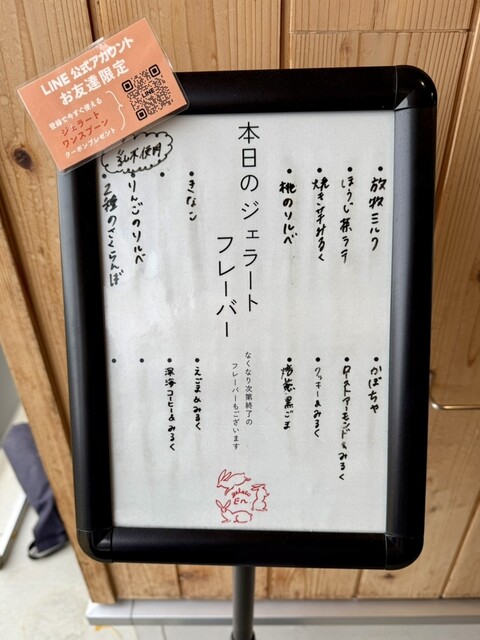 LINE 公式アカウント
お友達限定
登録で今すぐ使える
ジェラート
ワンスプーン
クーポンプレゼント
LINE
本日のジェラート
フレーバー
・放牧ミルク
・ほうじ茶ラテ
・焼き芋みるく
・桃のソルベ
・きなこ
使用
・りんごのソルベ
・2種のさくらんぼ
・かぼちゃ
・ローストアーモンド&みるく
・クッキー&みるく
・焙煎黒ごま
なくなり次第終了の
フレーバーもございます
・えごま&みるく
・深海コーヒー&みるく
gelato
En